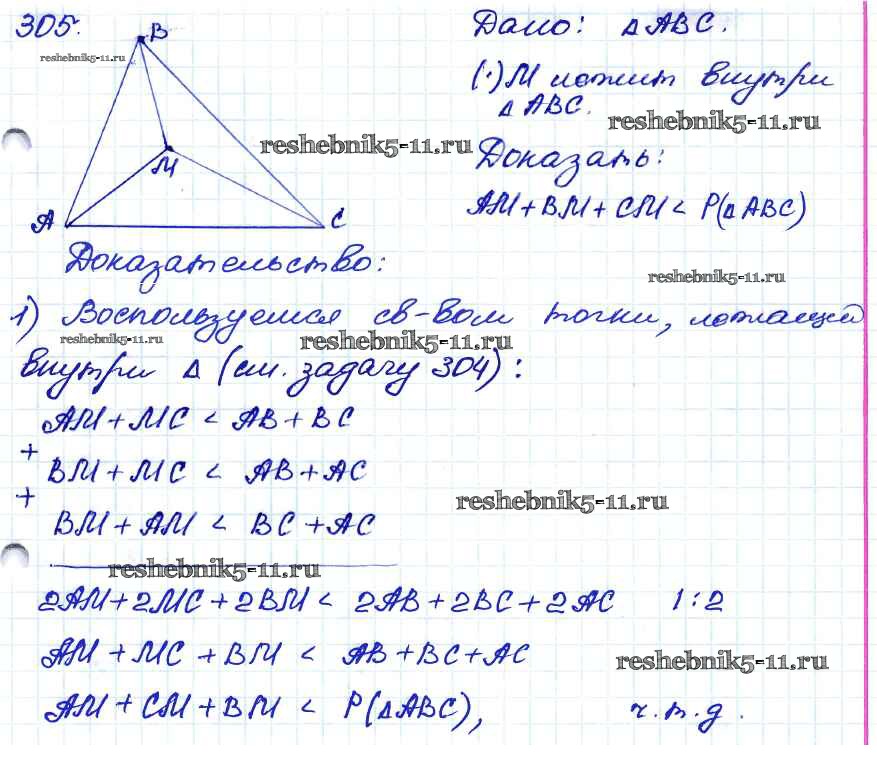 305.
B
reshebnik5-11.ru
M
A
C
Дано: △ABC.
(·)M лежит внутри
△ABC.
reshebnik5-11.ru
reshebnik5-11.ru
Доказать:
AM+BM+CM < P(△ABC)
Доказательство:
reshebnik5-11.ru
1) Воспользуемся св-вом точки, лежащей
reshebnik5-11.ru
reshebnik5-11.ru
внутри △ (см. задачу 304):
AM+MC < AB+BC
+
BM+MC < AB+AC
+
reshebnik5-11.ru
BM+AM < BC+AC
reshebnik5-11.ru
2AM+2MC+2BM < 2AB+2BC+2AC |:2
AM+MC+BM < AB+BC+AC
reshebnik5-11.ru
AM+CM+BM < P(△ABC), ч.т.д.